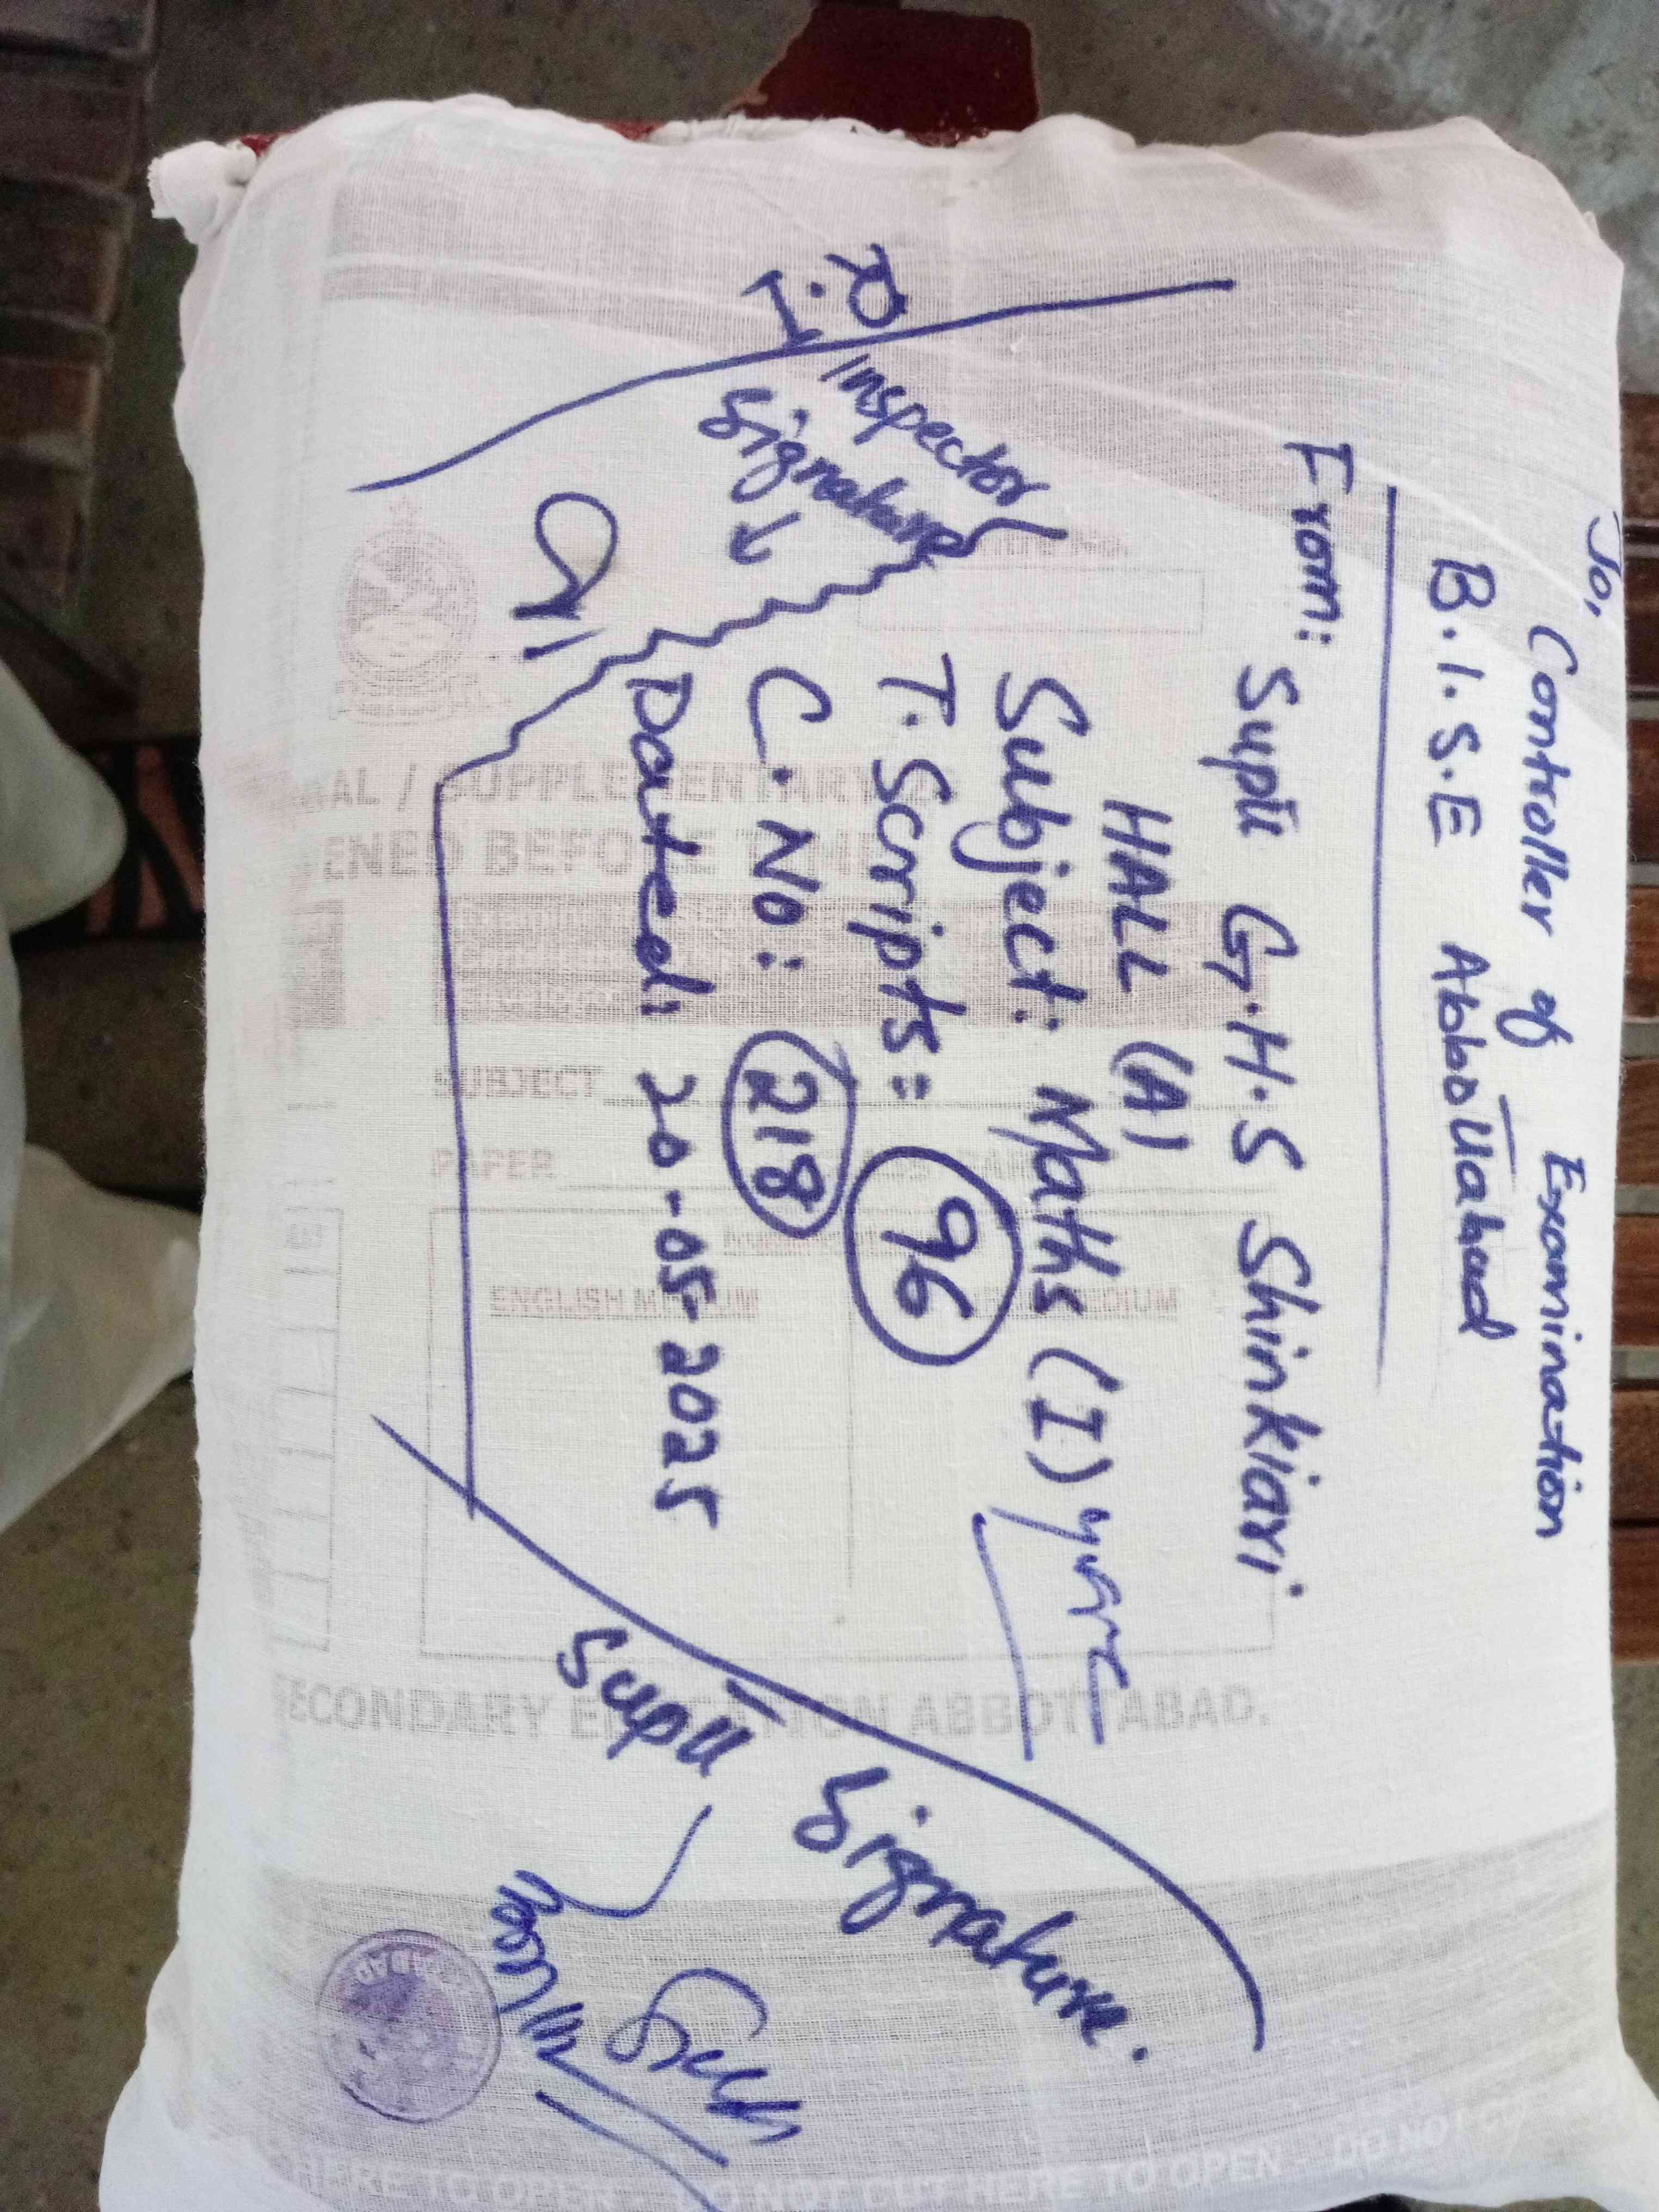 To,
Controller of Examination
B.I.S.E Abbottabad
From:
Supdt G.H.S Shinkiari
HALL (A)
Subject: Maths (I)
T.Scripts = 96
C.No: 218
Dated: 20-05-2025
R.I
Inspector
Signature
Supdt
Signature.
SUPPLEMENTARY
BEFORE
SUBJECT
PAPER
ENGLISH MEDIUM
MEDIUM
SECONDARY EDUCATION ABBOTTABAD.
HERE TO OPEN - DO NOT CUT HERE TO OPEN - DO NOT CU